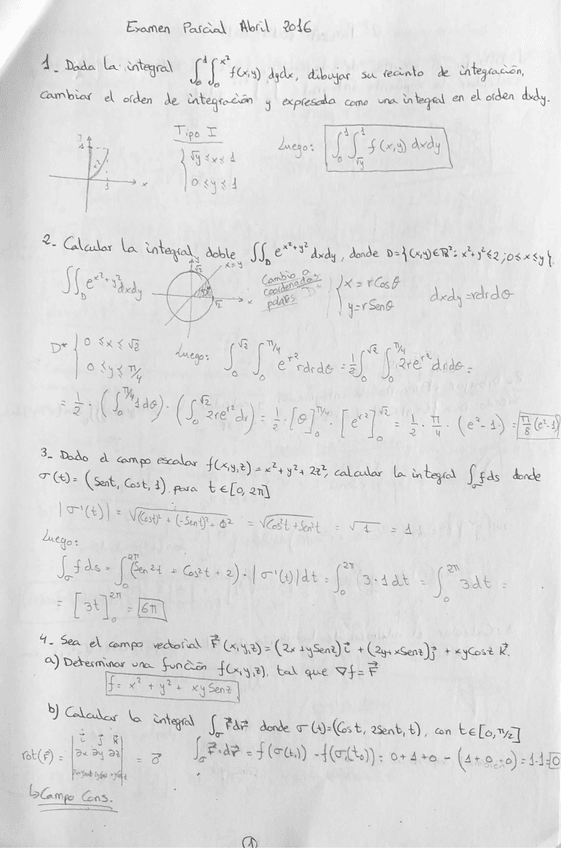 Examen Parcial Abril 2016
1- Dada la integral ∫₀¹∫₀^x² f(x,y) dydx, dibujar su recinto de integración,
cambiar el orden de integración y expresada como una integral en el orden dxdy.
Tipo I
√y ≤ x ≤ 1
0 ≤ y ≤ 1
Luego: ∫₀¹∫_√y^1 f(x,y) dxdy
2- Calcular la integral doble ∬_D e^(x²+y²) dxdy, donde D={(x,y)∈ℝ²: x²+y²≤2; 0≤x≤y}.
∬_D e^(x²+y²) dxdy
x=y
√2
√2
x
Cambio a coordenadas polares
x = rCosθ
y = rSenθ
dxdy = rdrdθ
D* 0 ≤ x ≤ √2
0 ≤ y ≤ π/4
Luego: ∫₀^√2 ∫₀^π/4 e^r² rdrdθ = ½ ∫₀^√2 ∫₀^π/4 2re^r² drdθ =
= ½ · (∫₀^π/4 1dθ) · (∫₀^√2 2re^r² dr) = ½ · [θ]₀^π/4 · [e^r²]₀^√2 = ½ · π/4 · (e²-1) = π/8 (e²-1)
3- Dado el campo escalar f(x,y,z) = x²+y²+2z², calcular la integral ∫_σ f ds donde
σ(t) = (Sent, Cost, 1) para t ∈ [0, 2π]
|σ'(t)| = √((Cost)² + (-Sent)² + 0²) = √(Cos²t + Sen²t) = √1 = 1
Luego:
∫_σ f ds = ∫₀^2π (Sen²t + Cos²t + 2) · |σ'(t)| dt = ∫₀^2π 3·1 dt = ∫₀^2π 3dt =
= [3t]₀^2π = 6π
4- Sea el campo vectorial F⃗(x,y,z) = (2x+ySenz)i⃗ + (2y+xSenz)j⃗ + xyCosz k⃗.
a) Determinar una función f(x,y,z), tal que ∇f = F⃗
f = x² + y² + xySenz
b) Calcular la integral ∫_σ F⃗dr⃗ donde σ(t)=(Cost, 2Sent, t), con t∈[0,π/2]
rot(F⃗) = | i⃗ j⃗ k⃗ | = 0⃗
∂x ∂y ∂z
∫_σ F⃗·dr⃗ = f(σ(t₁)) - f(σ(t₀)) =
↳ Campo Cons.
1